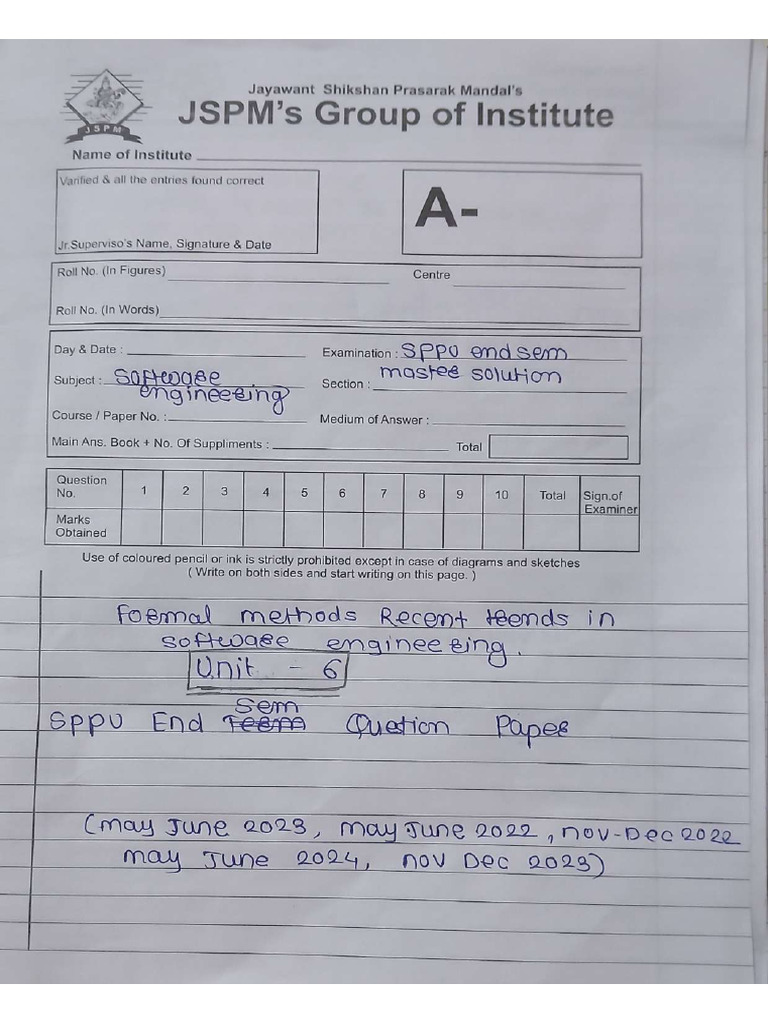 Jayawant Shikshan Prasarak Mandal's
JSPM's Group of Institute
JSPM
Name of Institute
Varified & all the entries found correct
A-
Jr.Superviso's Name, Signature & Date
Roll No. (In Figures)
Centre
Roll No. (In Words)
Day & Date :
Examination : SPPU end sem
Subject : Software
Section : master solution
engineering
Course / Paper No. :
Medium of Answer :
Main Ans. Book + No. Of Suppliments :
Total
Question No. 1 2 3 4 5 6 7 8 9 10 Total Sign.of Examiner
Marks Obtained
Use of coloured pencil or ink is strictly prohibited except in case of diagrams and sketches
( Write on both sides and start writing on this page. )
Formal methods Recent trends in
software engineering.
Unit - 6
Sem
SPPU End Question Paper
(may June 2023, may June 2022, nov-Dec 2022
may June 2024, nov Dec 2023)